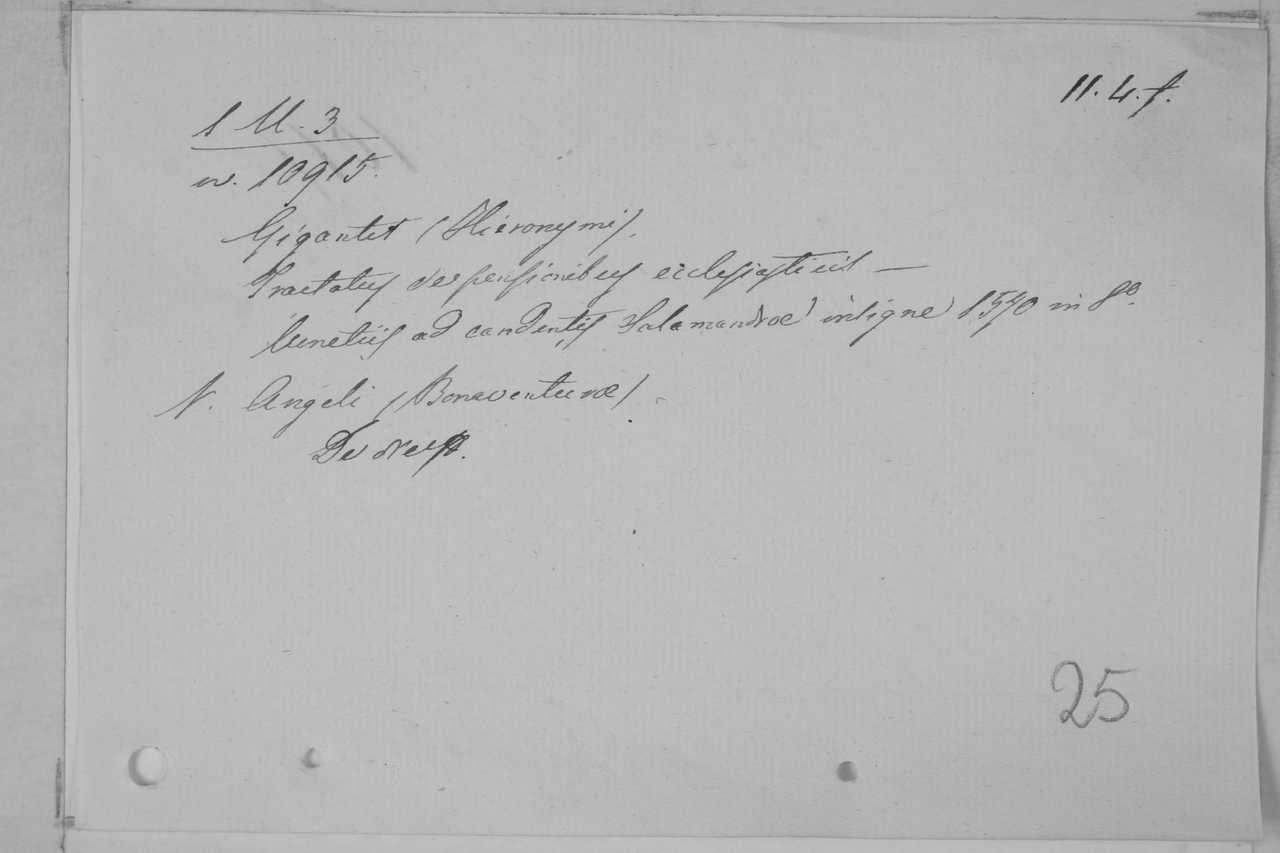 11.4.f.
1 U. 3
w. 10915.
Gigantis (Hieronymi).
Tractatus de pensionibus ecclesiasticis —
Venetiis ad candentis Salamandrae insigne 1570 in 8º.
N. Angeli (Bonaventurae).
De
25